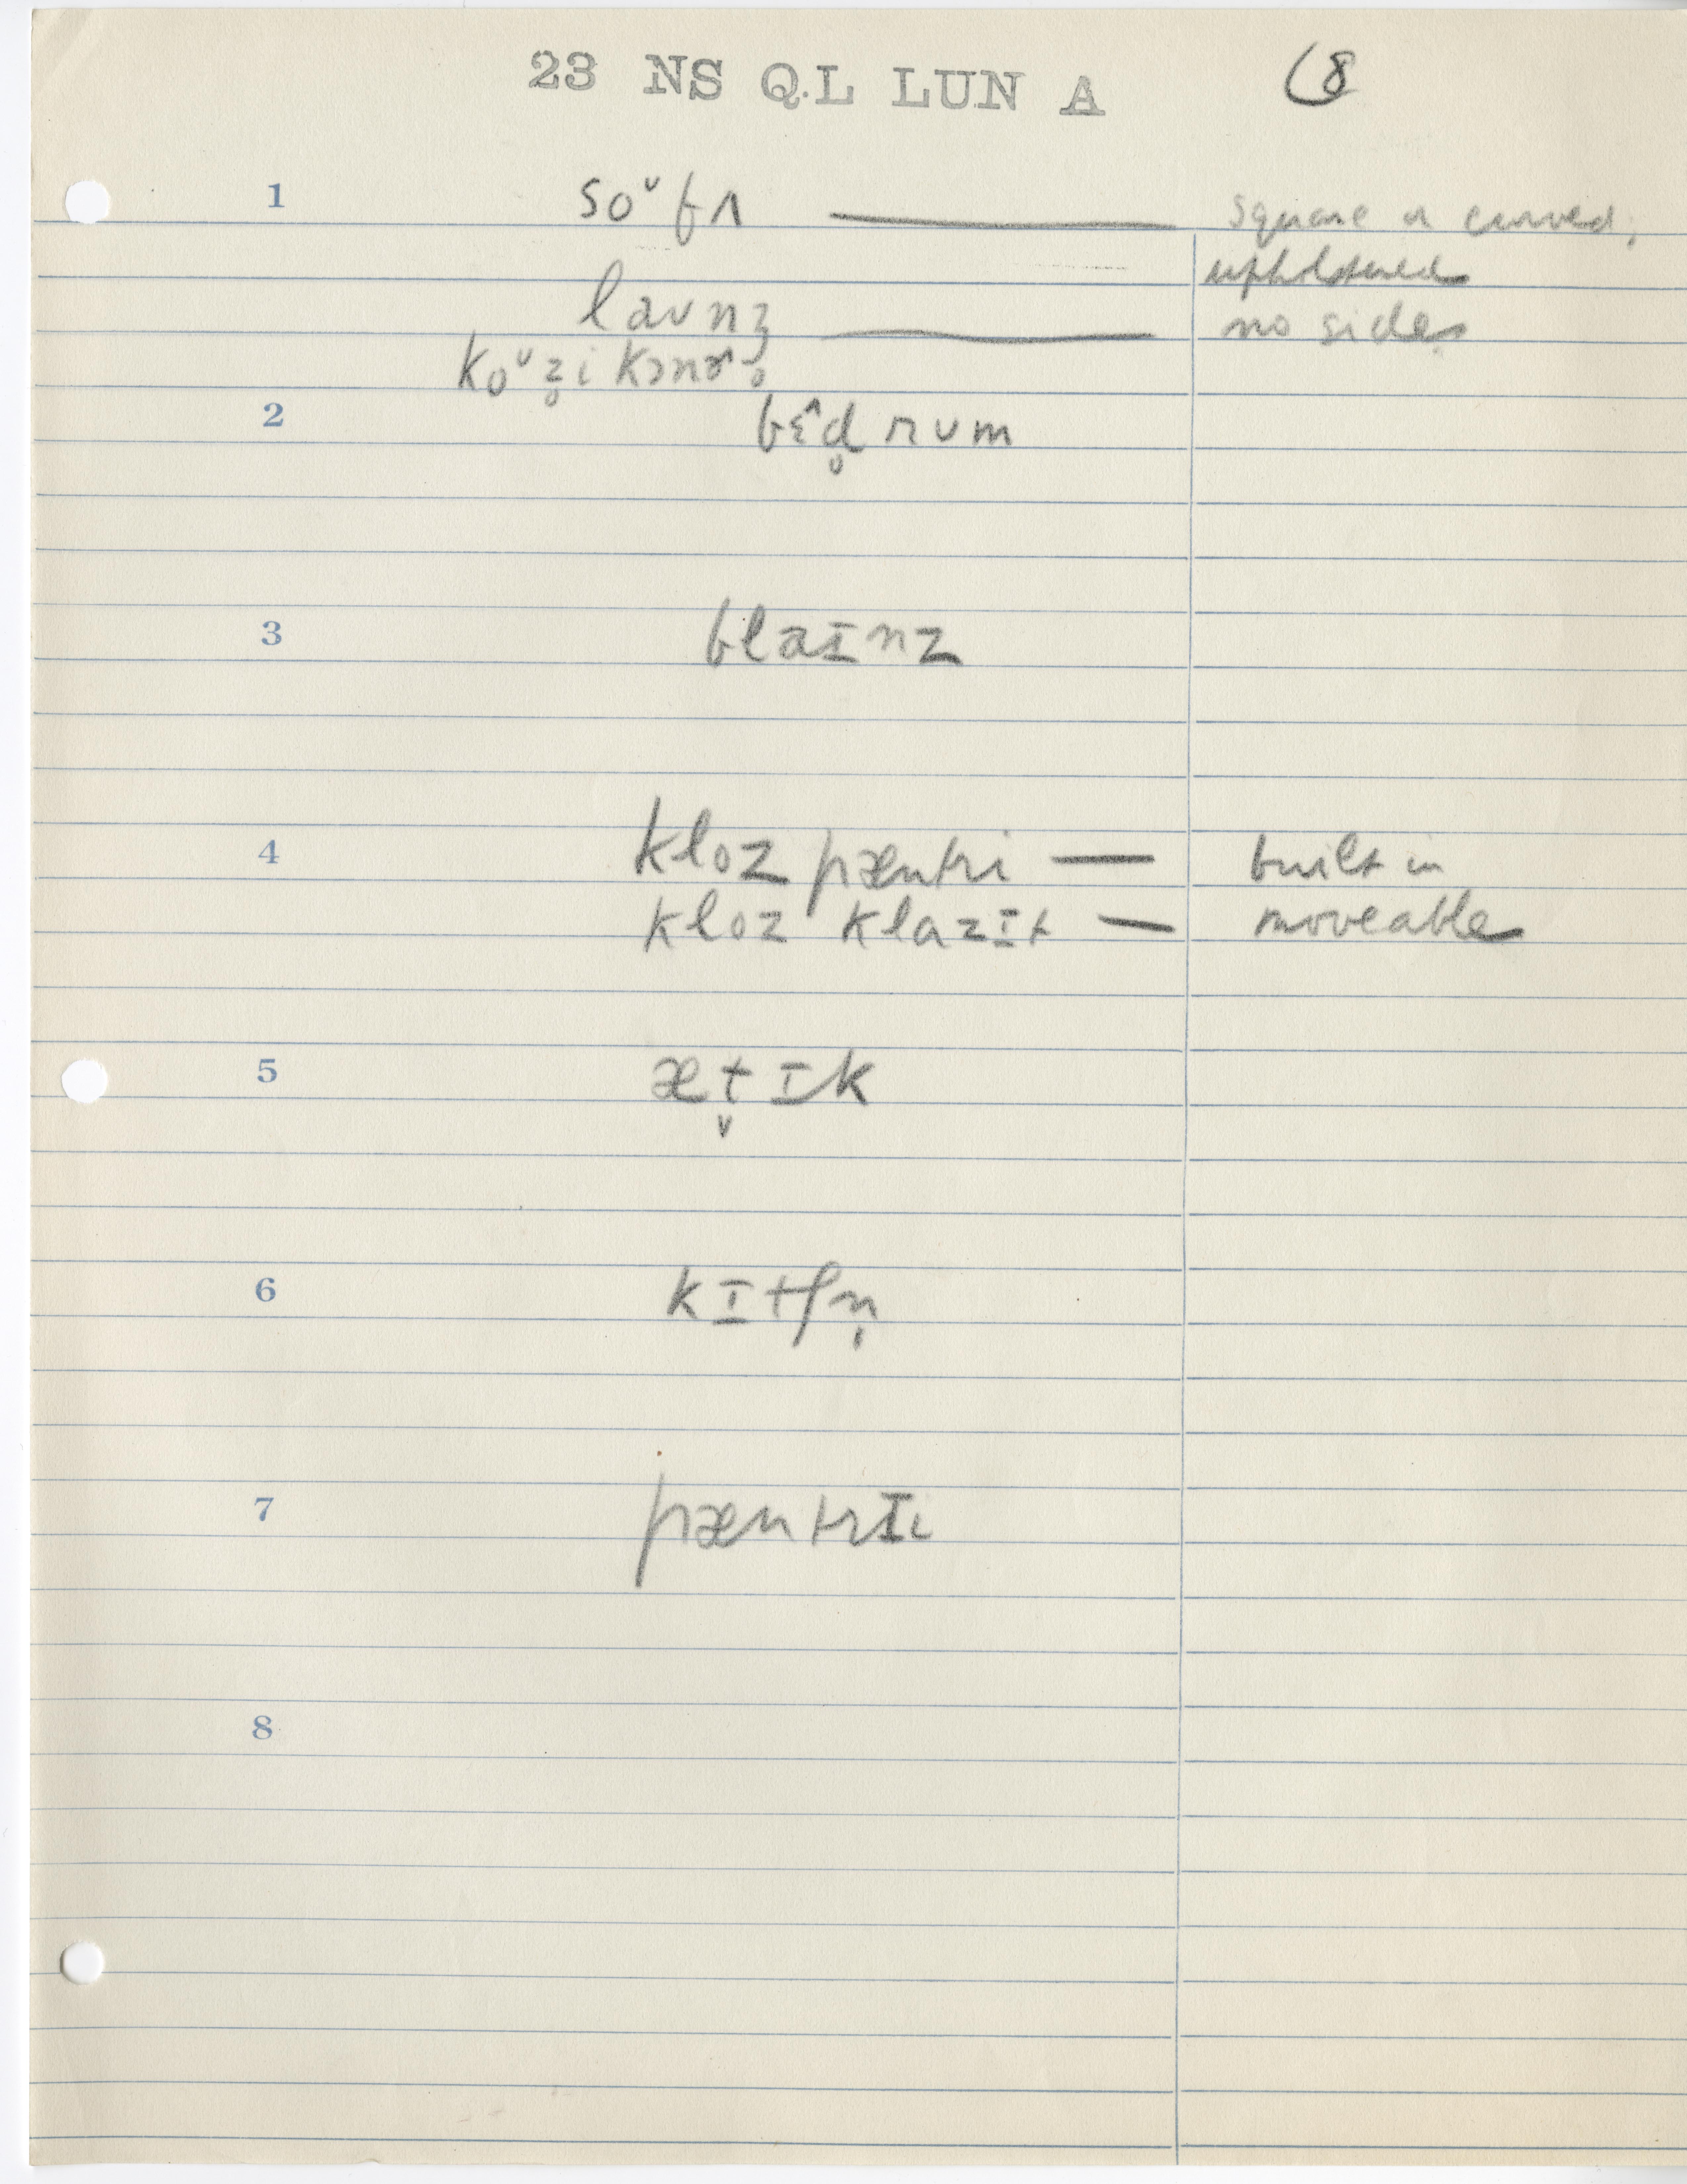 23 NS Q.L LUN A 8
1 soᵛfʌ — square or curved,
upholstered
laʊnʒ̥ — no sides
koᵛz̥i kɔnɚ^
2 bɛ^d̥ rʊm
3 blaɪnz
4 kloz pæntri — built in
kloz klazɪt — moveable
5 æt̬ɪk
6 kɪtʃn̩
7 pæntrɪi
8